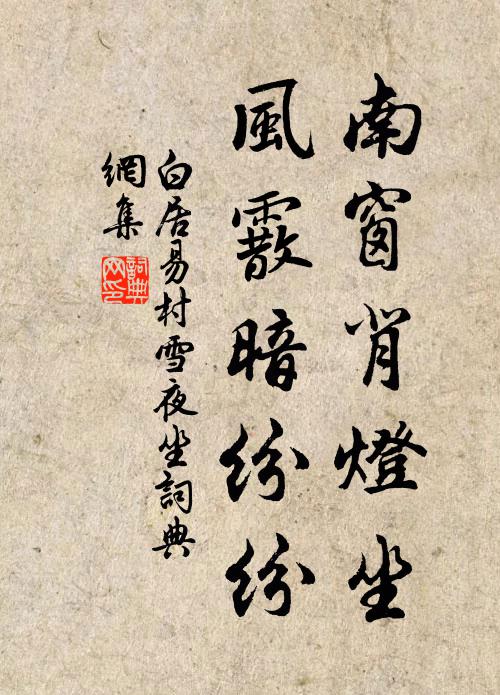 南窗背燈坐
風霰暗紛紛
白居易村雪夜坐詞典
網集
詞典
网印